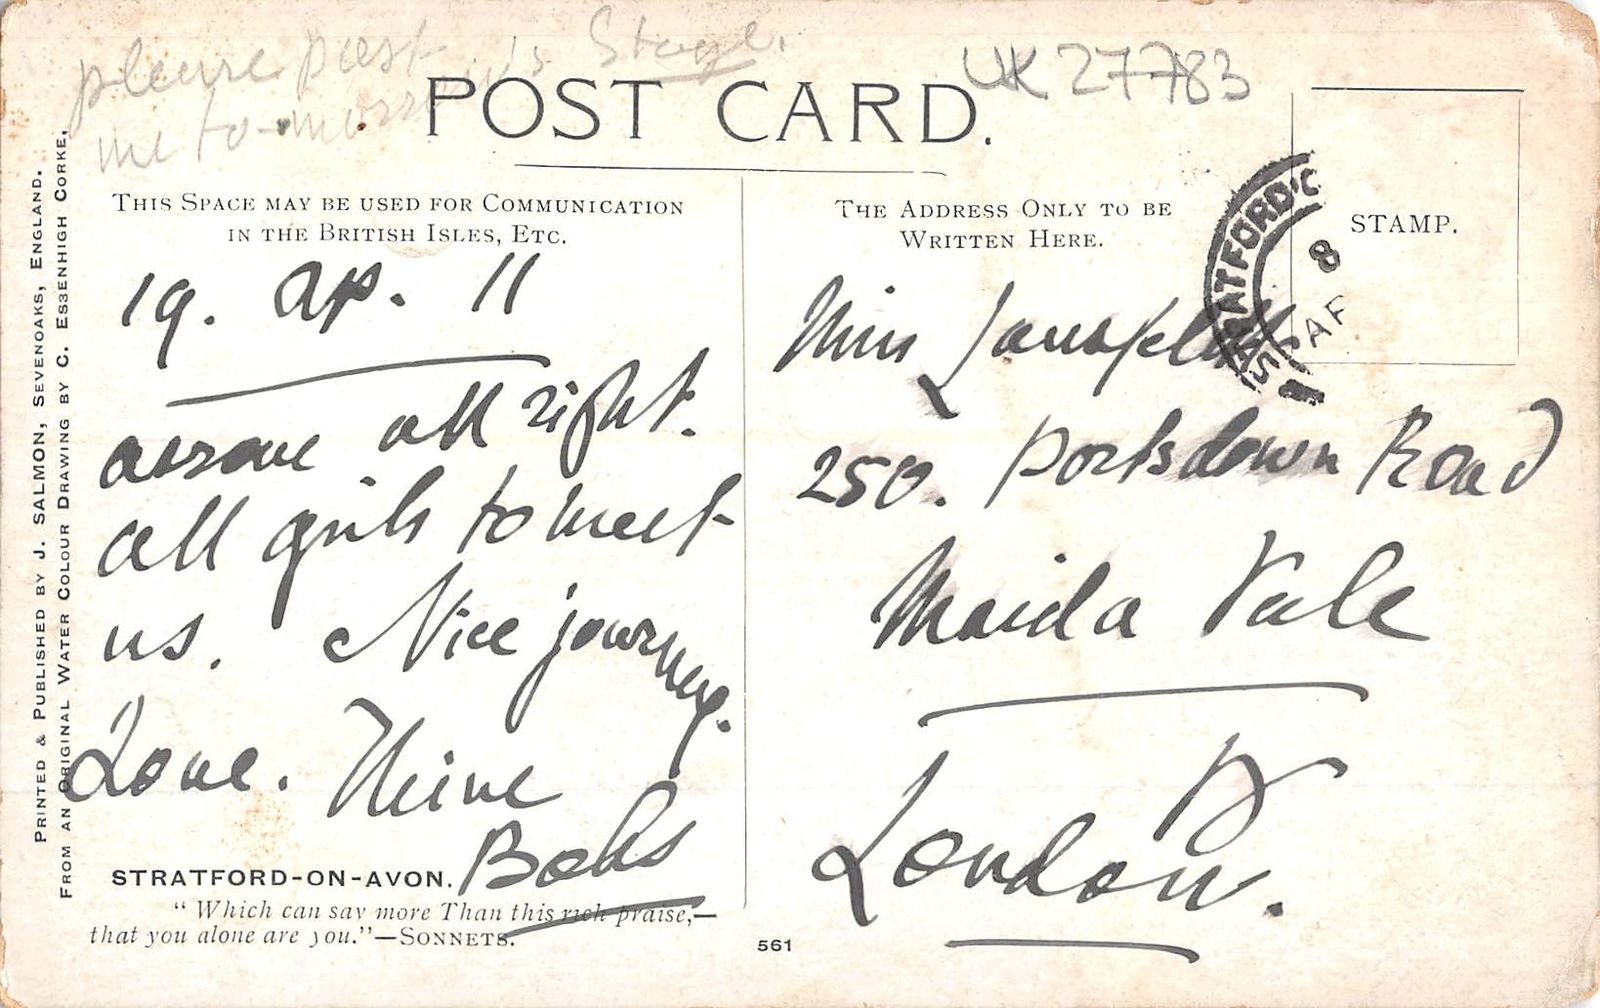 please post
me to-morrow's Stage.
UK 27783
POST CARD.
THIS SPACE MAY BE USED FOR COMMUNICATION
IN THE BRITISH ISLES, ETC.
THE ADDRESS ONLY TO BE
WRITTEN HERE.
STAMP.
STRATFORD
8
AP
19. Ap. 11
arrove all right.
all girls to meet
us. Nice journey.
Love. Thine
Bobs
Miss
250. Portsdown Road
Maida Vale
W
London.
STRATFORD-ON-AVON.
“Which can say more Than this rich praise,—
that you alone are you.”—SONNETS.
561
PRINTED & PUBLISHED BY J. SALMON, SEVENOAKS, ENGLAND.
FROM AN ORIGINAL WATER COLOUR DRAWING BY C. ESSENHIGH CORKE.